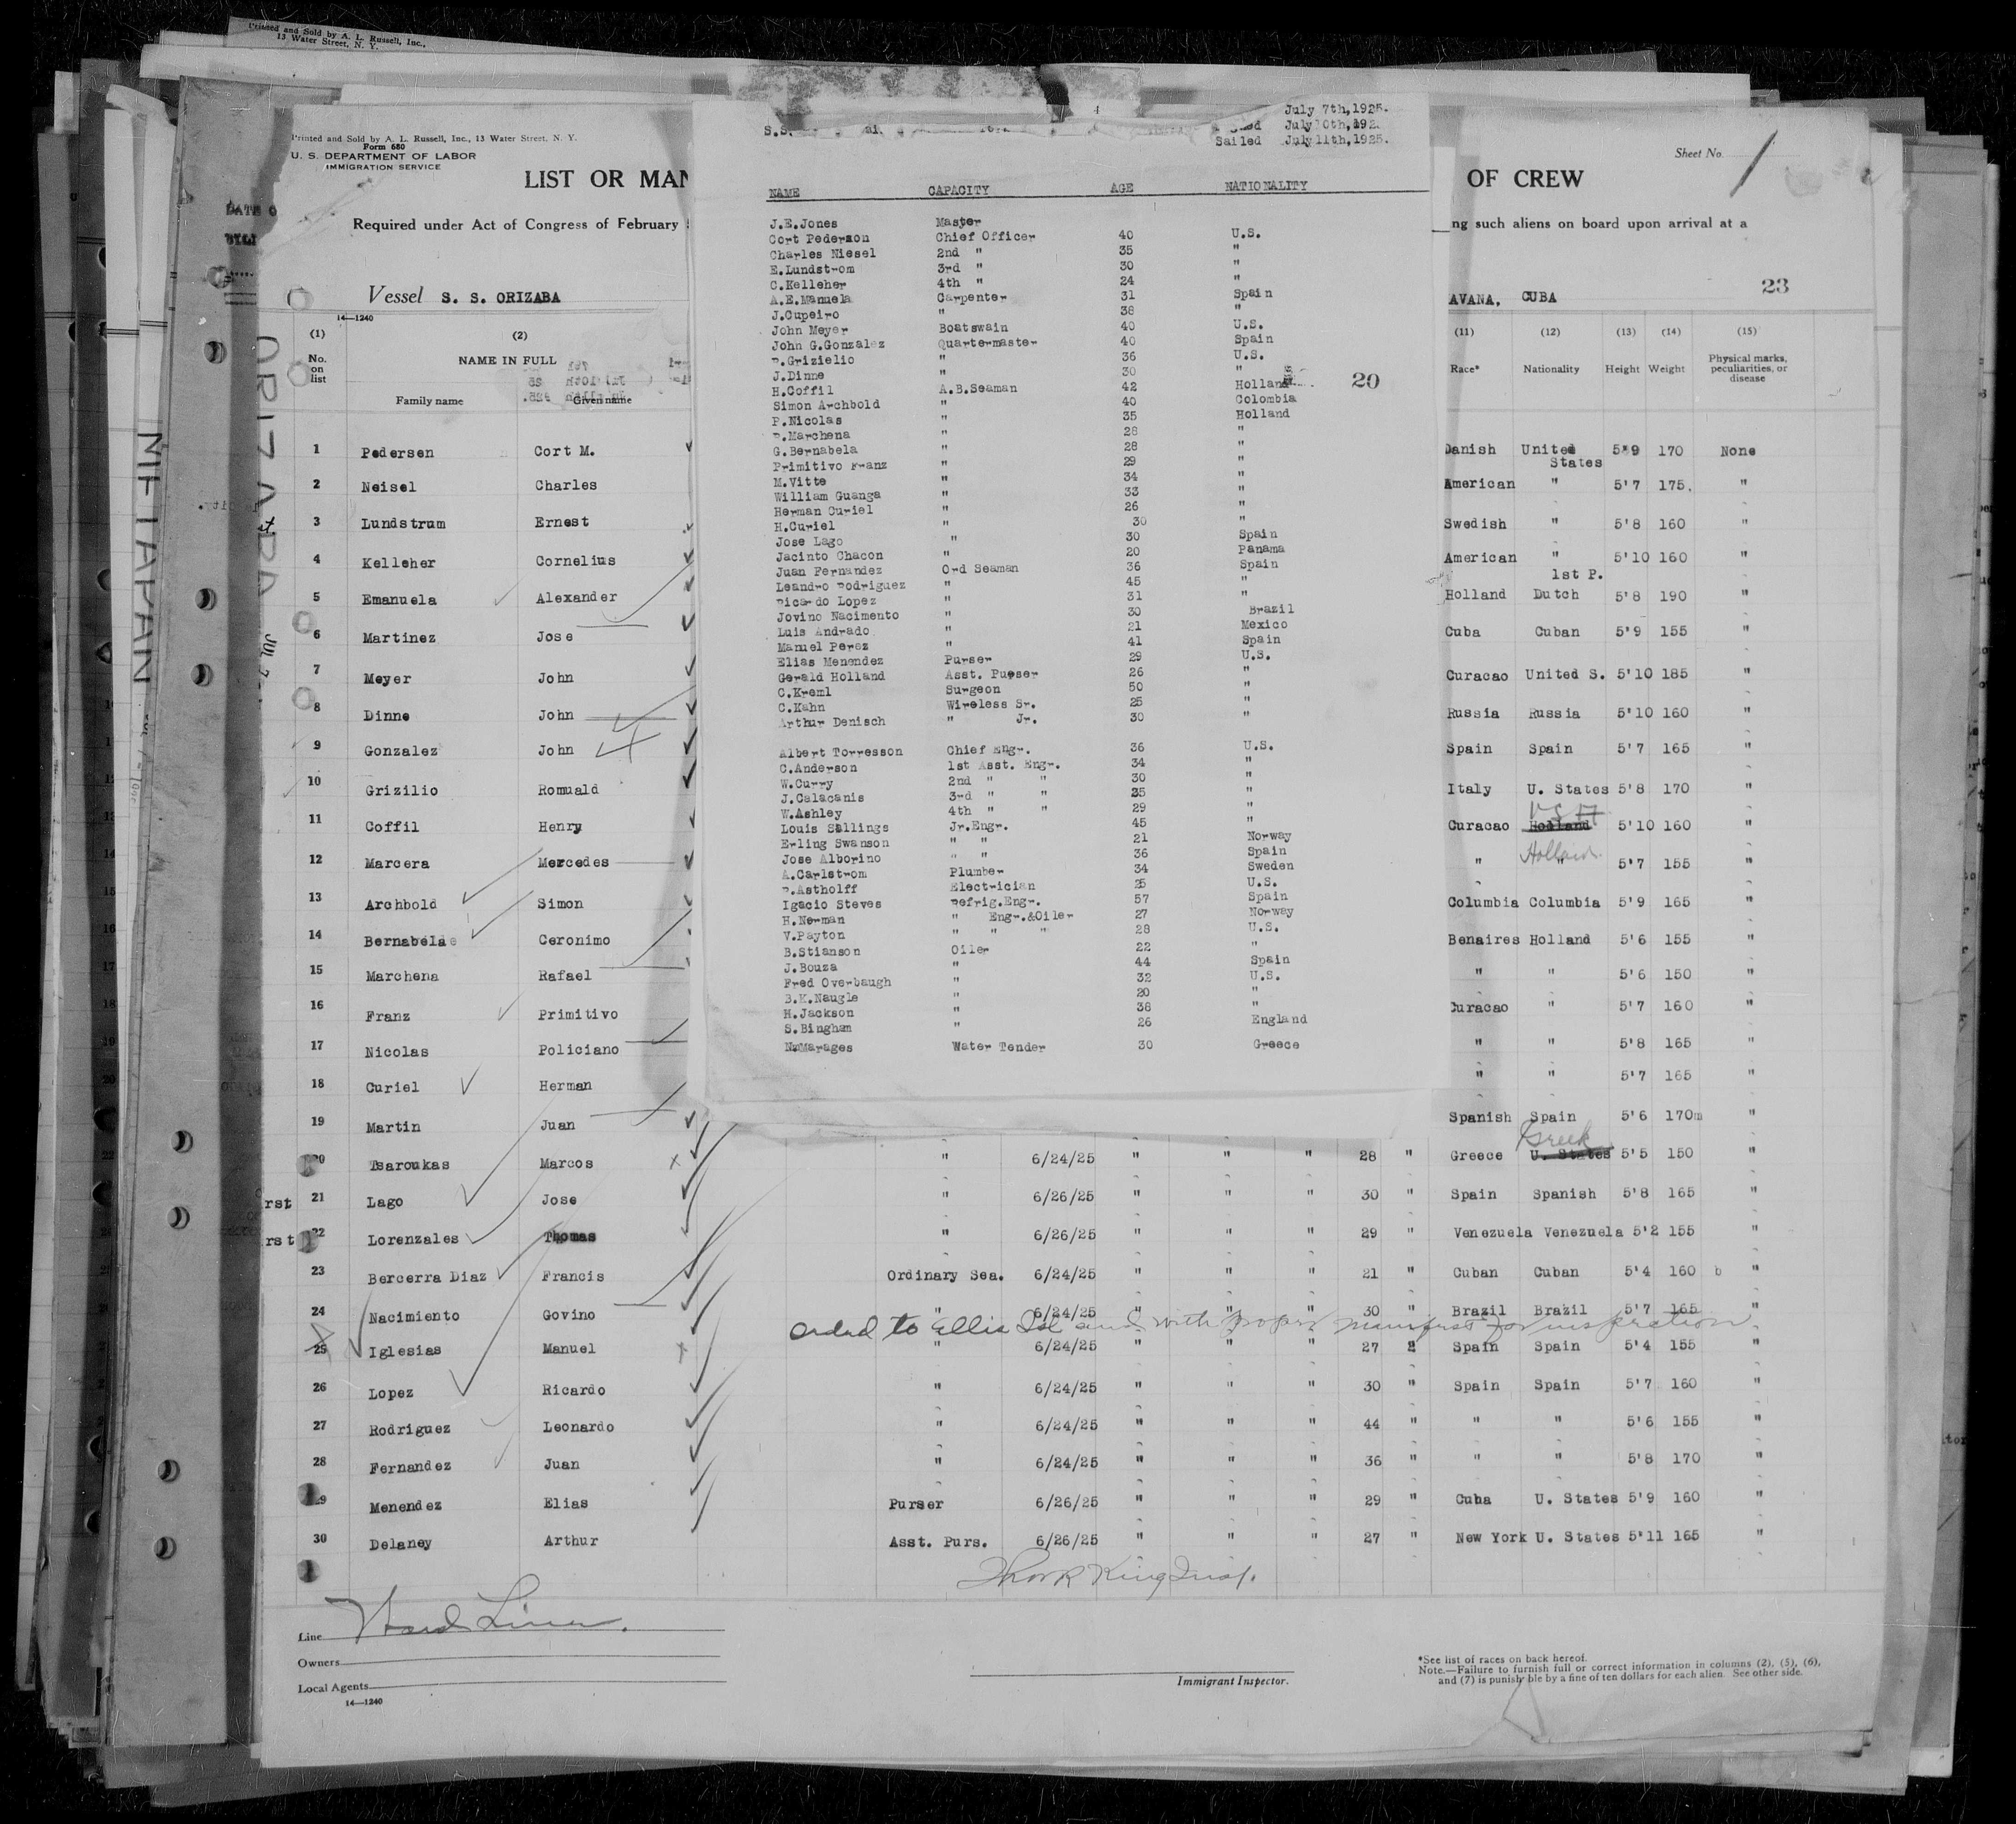 Printed and Sold by A. L. Russell, Inc.,
13 Water Street, N. Y.
Printed and Sold by A. L. Russell, Inc., 13 Water Street, N. Y.
Form 680
U. S. DEPARTMENT OF LABOR
IMMIGRATION SERVICE
LIST OR MAN
Required under Act of Congress of February
Vessel S. S. ORIZABA
14—1240
(1) (2)
No. on list
NAME IN FULL
Family name Given name
1 Pedersen Cort M.
2 Neisel Charles
3 Lundstrum Ernest
4 Kelleher Cornelius
5 Emanuela Alexander
6 Martinez Jose
7 Meyer John
8 Dinne John
9 Gonzalez John
10 Grizilio Romuald
11 Coffil Henry
12 Marcera Mercedes
13 Archbold Simon
14 Bernabela Ceronimo
15 Marchena Rafael
16 Franz Primitivo
17 Nicolas Policiano
18 Curiel Herman
19 Martin Juan
July 7th,1925.
July 10th,192
Sailed July 11th,1925.
NAME CAPACITY AGE NATIONALITY
J.E.Jones Master
Cort Pederson Chief Officer 40 U.S.
Charles Niesel 2nd " 35 "
E.Lundstrom 3rd " 30 "
C.Kelleher 4th " 24 "
A.E.Manuela Carpenter 31 Spain
J.Cupeiro " 38 "
John Meyer Boatswain 40 U.S.
John G.Gonzalez Quartermaster 40 Spain
R.Grizielio " 36 U.S.
J.Dinne " 30 "
H.Coffil A.B.Seaman 42 Holland
20
Simon Archbold " 40 Colombia
P.Nicolas " 35 Holland
R.Marchena " 28 "
G.Bernabela " 28 "
Primitivo Franz " 29 "
M.Vitte " 34 "
William Guanga " 33 "
Herman Curiel " 26 "
H.Curiel " 30 "
Jose Lago " 30 Spain
Jacinto Chacon " 20 Panama
Juan Fernandez Ord Seaman 36 Spain
Leandro Rodriguez " 45 "
Ricardo Lopez " 31 "
Jovino Nacimento " 30 Brazil
Luis Andrado " 21 Mexico
Manuel Perez " 41 Spain
Elias Menendez Purser 29 U.S.
Gerald Holland Asst. Purser 26 "
C.Kreml Surgeon 50 "
C.Kahn Wireless Sr. 25 "
Arthur Denisch " Jr. 30 "
Albert Torresson Chief Engr. 36 U.S.
C.Anderson 1st Asst. Engr. 34 "
W.Curry 2nd " " 30 "
J.Calacanis 3rd " " 35 "
W.Ashley 4th " " 29 "
Louis Sollings Jr.Engr. 45 "
Erling Swanson " " 21 Norway
Jose Alborino " " 36 Spain
A.Carlstrom Plumber 34 Sweden
R.Astholff Electrician 25 U.S.
Igacio Steves Refrig.Engr. 57 Spain
H.Nerman " Engr.&Oiler 27 Norway
V.Payton " " " 28 U.S.
B.Stianson Oiler 22 "
J.Bouza " 44 Spain
Fred Overbaugh " 32 U.S.
B.K.Naugle " 20 "
H.Jackson " 38 "
S.Bingham " 26 England
N.Marages Water Tender 30 Greece
Sheet No. 1
OF CREW
ng such aliens on board upon arrival at a
23
AVANA, CUBA
(11) (12) (13) (14) (15)
Race* Nationality Height Weight Physical marks, peculiarities, or disease
Danish United States 5'9 170 None
American " 5'7 175. "
Swedish " 5'8 160 "
American " 5'10 160 "
1st P.
Holland Dutch 5'8 190 "
Cuba Cuban 5'9 155 "
Curacao United S. 5'10 185 "
Russia Russia 5'10 160 "
Spain Spain 5'7 165 "
Italy U. States 5'8 170 "
Curacao Holland 5'10 160 "
Holland
" " 5'7 155 "
Columbia Columbia 5'9 165 "
Benaires Holland 5'6 155 "
" " 5'6 150 "
Curacao " 5'7 160 "
" " 5'8 165 "
" " 5'7 165 "
Spanish Spain 5'6 170 "
Greek
20 Tsaroukas Marcos " 6/24/25 " " " 28 " Greece U. States 5'5 150 "
rst 21 Lago Jose " 6/26/25 " " " 30 " Spain Spanish 5'8 165 "
rst 22 Lorenzales Thomas " 6/26/25 " " " 29 " Venezuela Venezuela 5'2 155 "
23 Bercerra Diaz Francis Ordinary Sea. 6/24/25 " " " 21 " Cuban Cuban 5'4 160 b "
24 Nacimiento Govino " 6/24/25 " " " 30 " Brazil Brazil 5'7 165 "
to Ellis Isl and with proper manifest for inspection.
25 Iglesias Manuel " 6/24/25 " " " 27 " Spain Spain 5'4 155 "
26 Lopez Ricardo " 6/24/25 " " " 30 " Spain Spain 5'7 160 "
27 Rodriguez Leonardo " 6/24/25 " " " 44 " " " 5'6 155 "
28 Fernandez Juan " 6/24/25 " " " 36 " " " 5'8 170 "
29 Menendez Elias Purser 6/26/25 " " " 29 " Cuba U. States 5'9 160 "
30 Delaney Arthur Asst. Purs. 6/26/25 " " " 27 " New York U. States 5'11 165 "
Line Ward Line.
Owners
Local Agents
14—1240
Immigrant Inspector.
*See list of races on back hereof.
Note.—Failure to furnish full or correct information in columns (2), (5), (6),
and (7) is punishable by a fine of ten dollars for each alien. See other side.